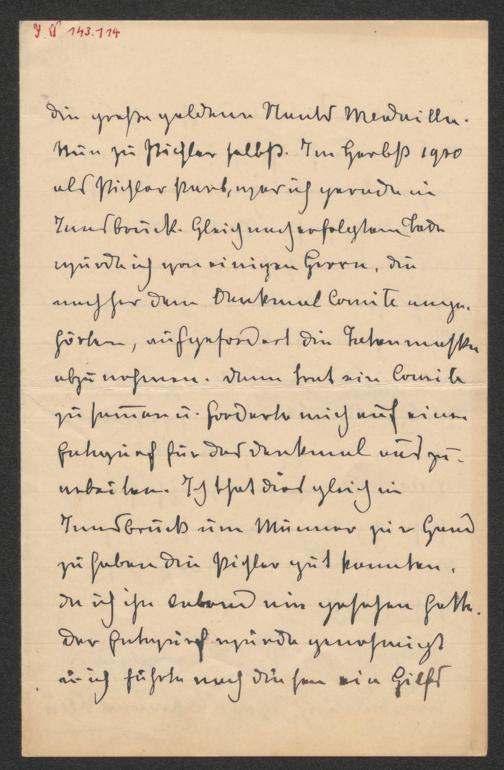 I.N. 143.114
die große goldene Staats Medaille.
Nun zu Pichler selbst. Im Herbst 1900
als Pichler starb, war ich gerade in
Innsbruck. Gleich nach erfolgtem Tode
wurde ich von einigen Herrn, die
nachher dem Denkmal Comite ange-
hörten, aufgefordert die Totenmaske
abzunehmen. Dann trat ein Comite
zusam̅en u. forderte mich auf einen
Entwurf für das Denkmal auszu-
arbeiten. Ich that dies gleich in
Innsbruck um Männer zur Hand
zu haben die Pichler gut kannten,
da ich ihn lebend nie gesehen hatte.
Der Entwurf wurde genehmigt
u. ich führte nach diesem ein Hilfs